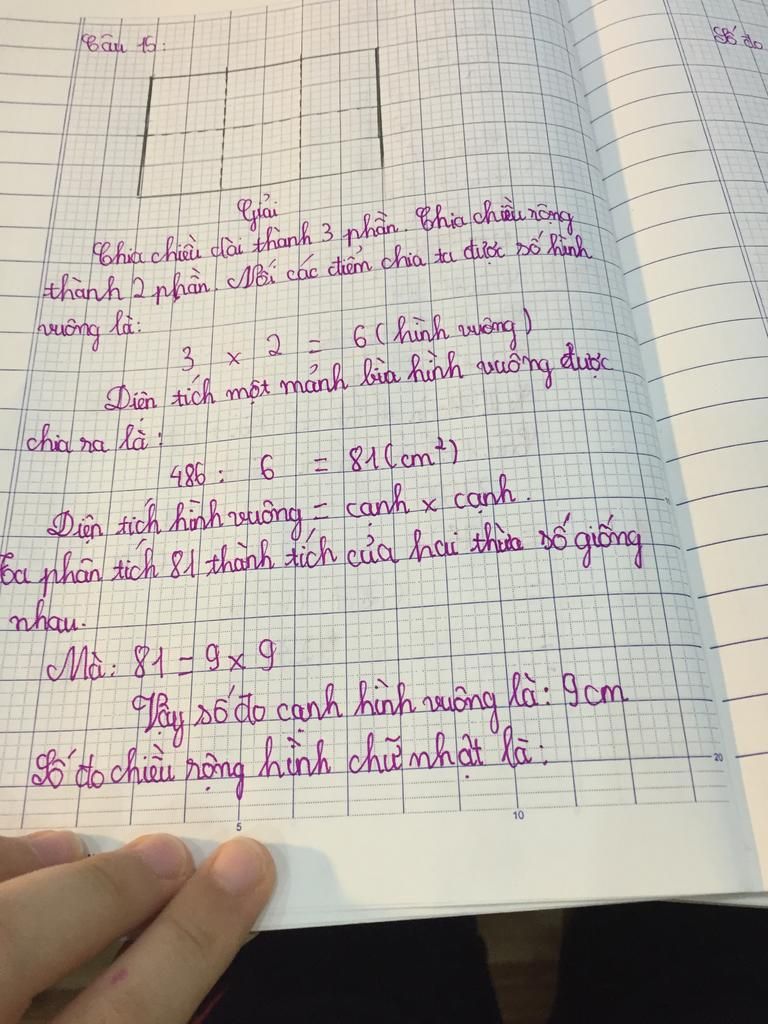 Câu 15:
Số đo
Giải
Chia chiều dài thành 3 phần. Chia chiều rộng
thành 2 phần. Nối các điểm chia ta được số hình
vuông là:
3 x 2 = 6 (hình vuông)
Diện tích một mảnh bìa hình vuông được
chia ra là:
486 : 6 = 81 (cm²)
Diện tích hình vuông = cạnh x cạnh.
Ta phân tích 81 thành tích của hai thừa số giống
nhau.
Mà: 81 = 9 x 9
Vậy số đo cạnh hình vuông là: 9cm
Số đo chiều rộng hình chữ nhật là:
20
5
10